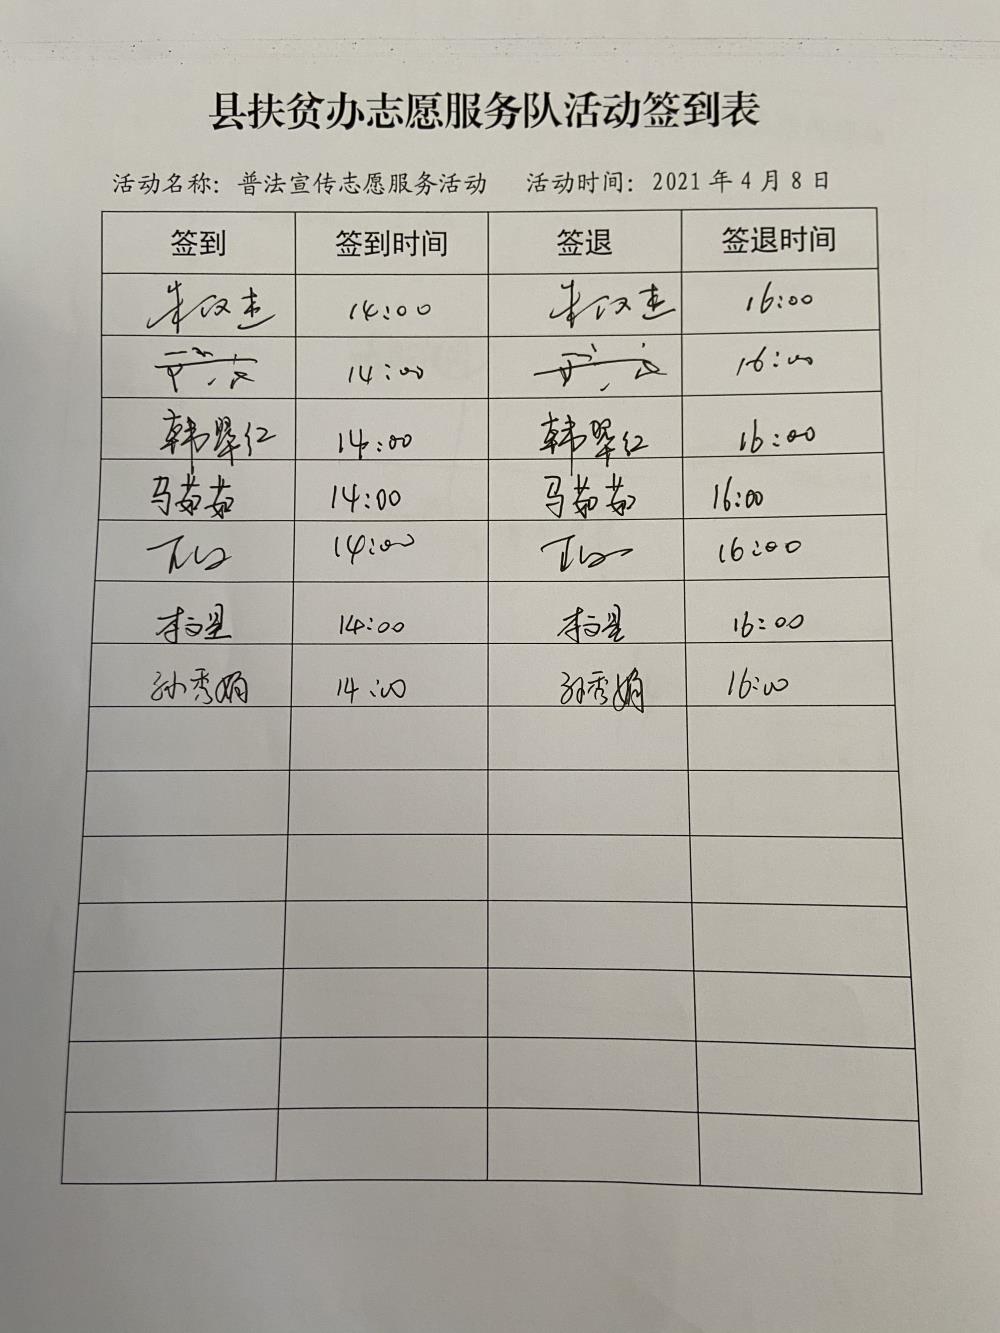 县扶贫办志愿服务队活动签到表
活动名称：普法宣传志愿服务活动 活动时间：2021年4月8日
签到 签到时间 签退 签退时间
朱汉杰 14:00 朱汉杰 16:00
14:00 16:00
韩翠红 14:00 韩翠红 16:00
马茹茹 14:00 马茹茹 16:00
14:00 16:00
李文星 14:00 李文星 16:00
孙秀娟 14:00 孙秀娟 16:00